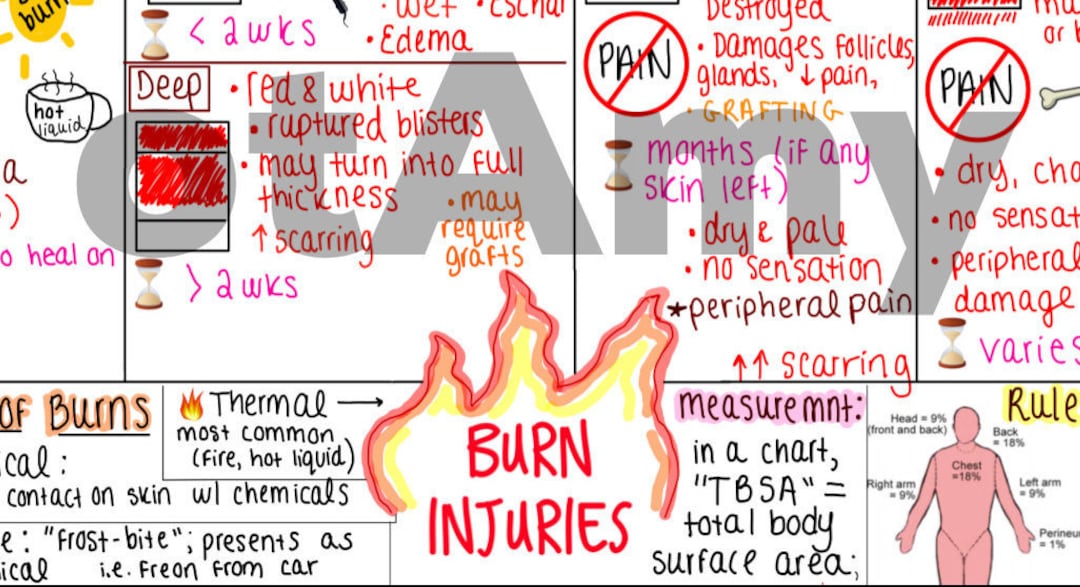 burn
< 2 wks
• wet • Eschar
• Edema
hot
liquid
a
)
o heal on
Deep
• red & white
• ruptured blisters
• may turn into full
thickness
↑ scarring
• may
require
grafts
> 2 wks
Destroyed
PAIN
• Damages follicles,
glands, ↓ pain,
• GRAFTING
months (if any
skin left)
• dry & pale
• no sensation
* peripheral pain
↑↑ scarring
or b
PAIN
• dry, cha
• no sensat
• peripheral
damage
varies
otAmy
of Burns
ical:
contact on skin w/ chemicals
e: "frost-bite"; presents as
ical i.e. Freon from car
Thermal →
most common
(fire, hot liquid)
BURN
INJURIES
measuremnt:
in a chart,
"TBSA" =
total body
surface area;
Rule
Head = 9%
(front and back)
Back
= 18%
Chest
=18%
Right arm
= 9%
Left arm
= 9%
Perineu
= 1%